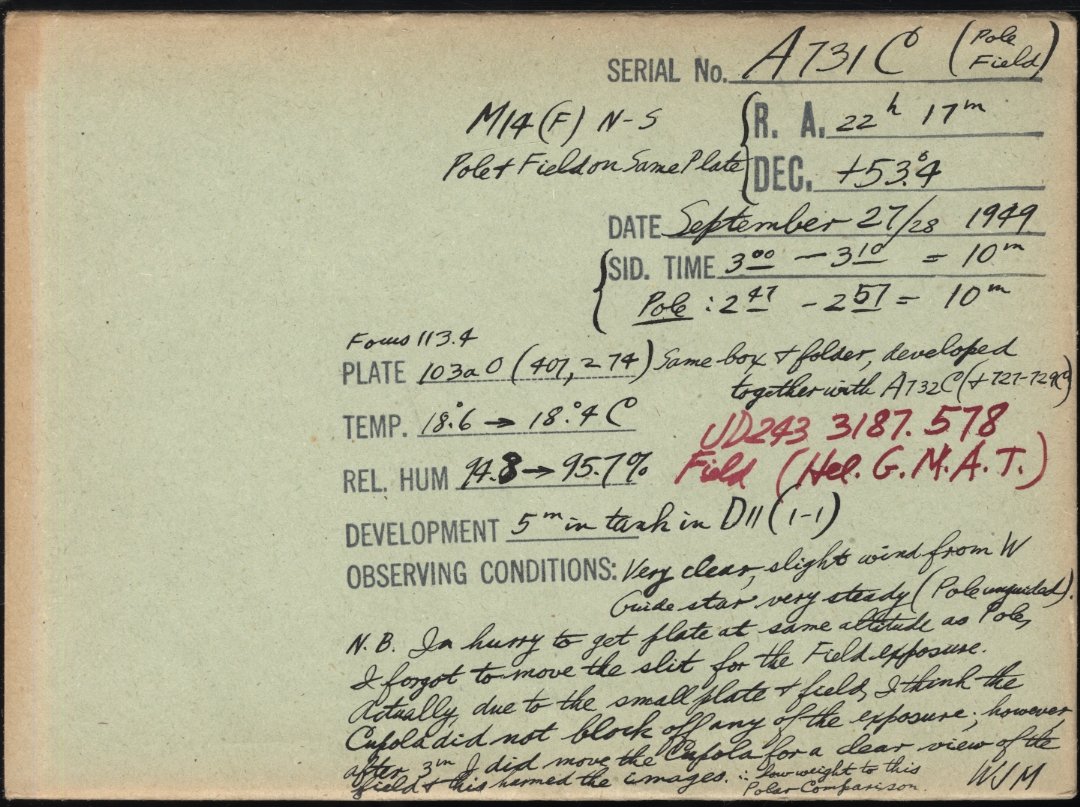 SERIAL No. A731C (Pole Field)
M14(F) N-S
R. A. 22h 17m
Pole + Field on Same Plate
DEC. +53°.4
DATE September 27/28 1949
SID. TIME 3 00 — 3 10 = 10m
Pole : 2 47 - 2 57 = 10m
Focus 113.4
PLATE 103a O (407, 274) Same box & folder, developed
together with A732C (+727-729C)
TEMP. 18°.6 → 18°.4 C
JD243 3187.578
REL. HUM 94.8 → 95.7%
Field (Hel. G.M.A.T.)
DEVELOPMENT 5m in tank in D11 (1-1)
OBSERVING CONDITIONS: Very clear, slight wind from W
Guide star very steady (Pole unguided).
N.B. In hurry to get plate at same altitude as Pole,
I forgot to move the slit for the Field exposure.
Actually, due to the small plate & field, I think the
Cupola did not block off any of the exposure; however
after 3m I did move the Cupola for a clear view of the
field & this harmed the images. ∴ low weight to this
Polar Comparison. WJM